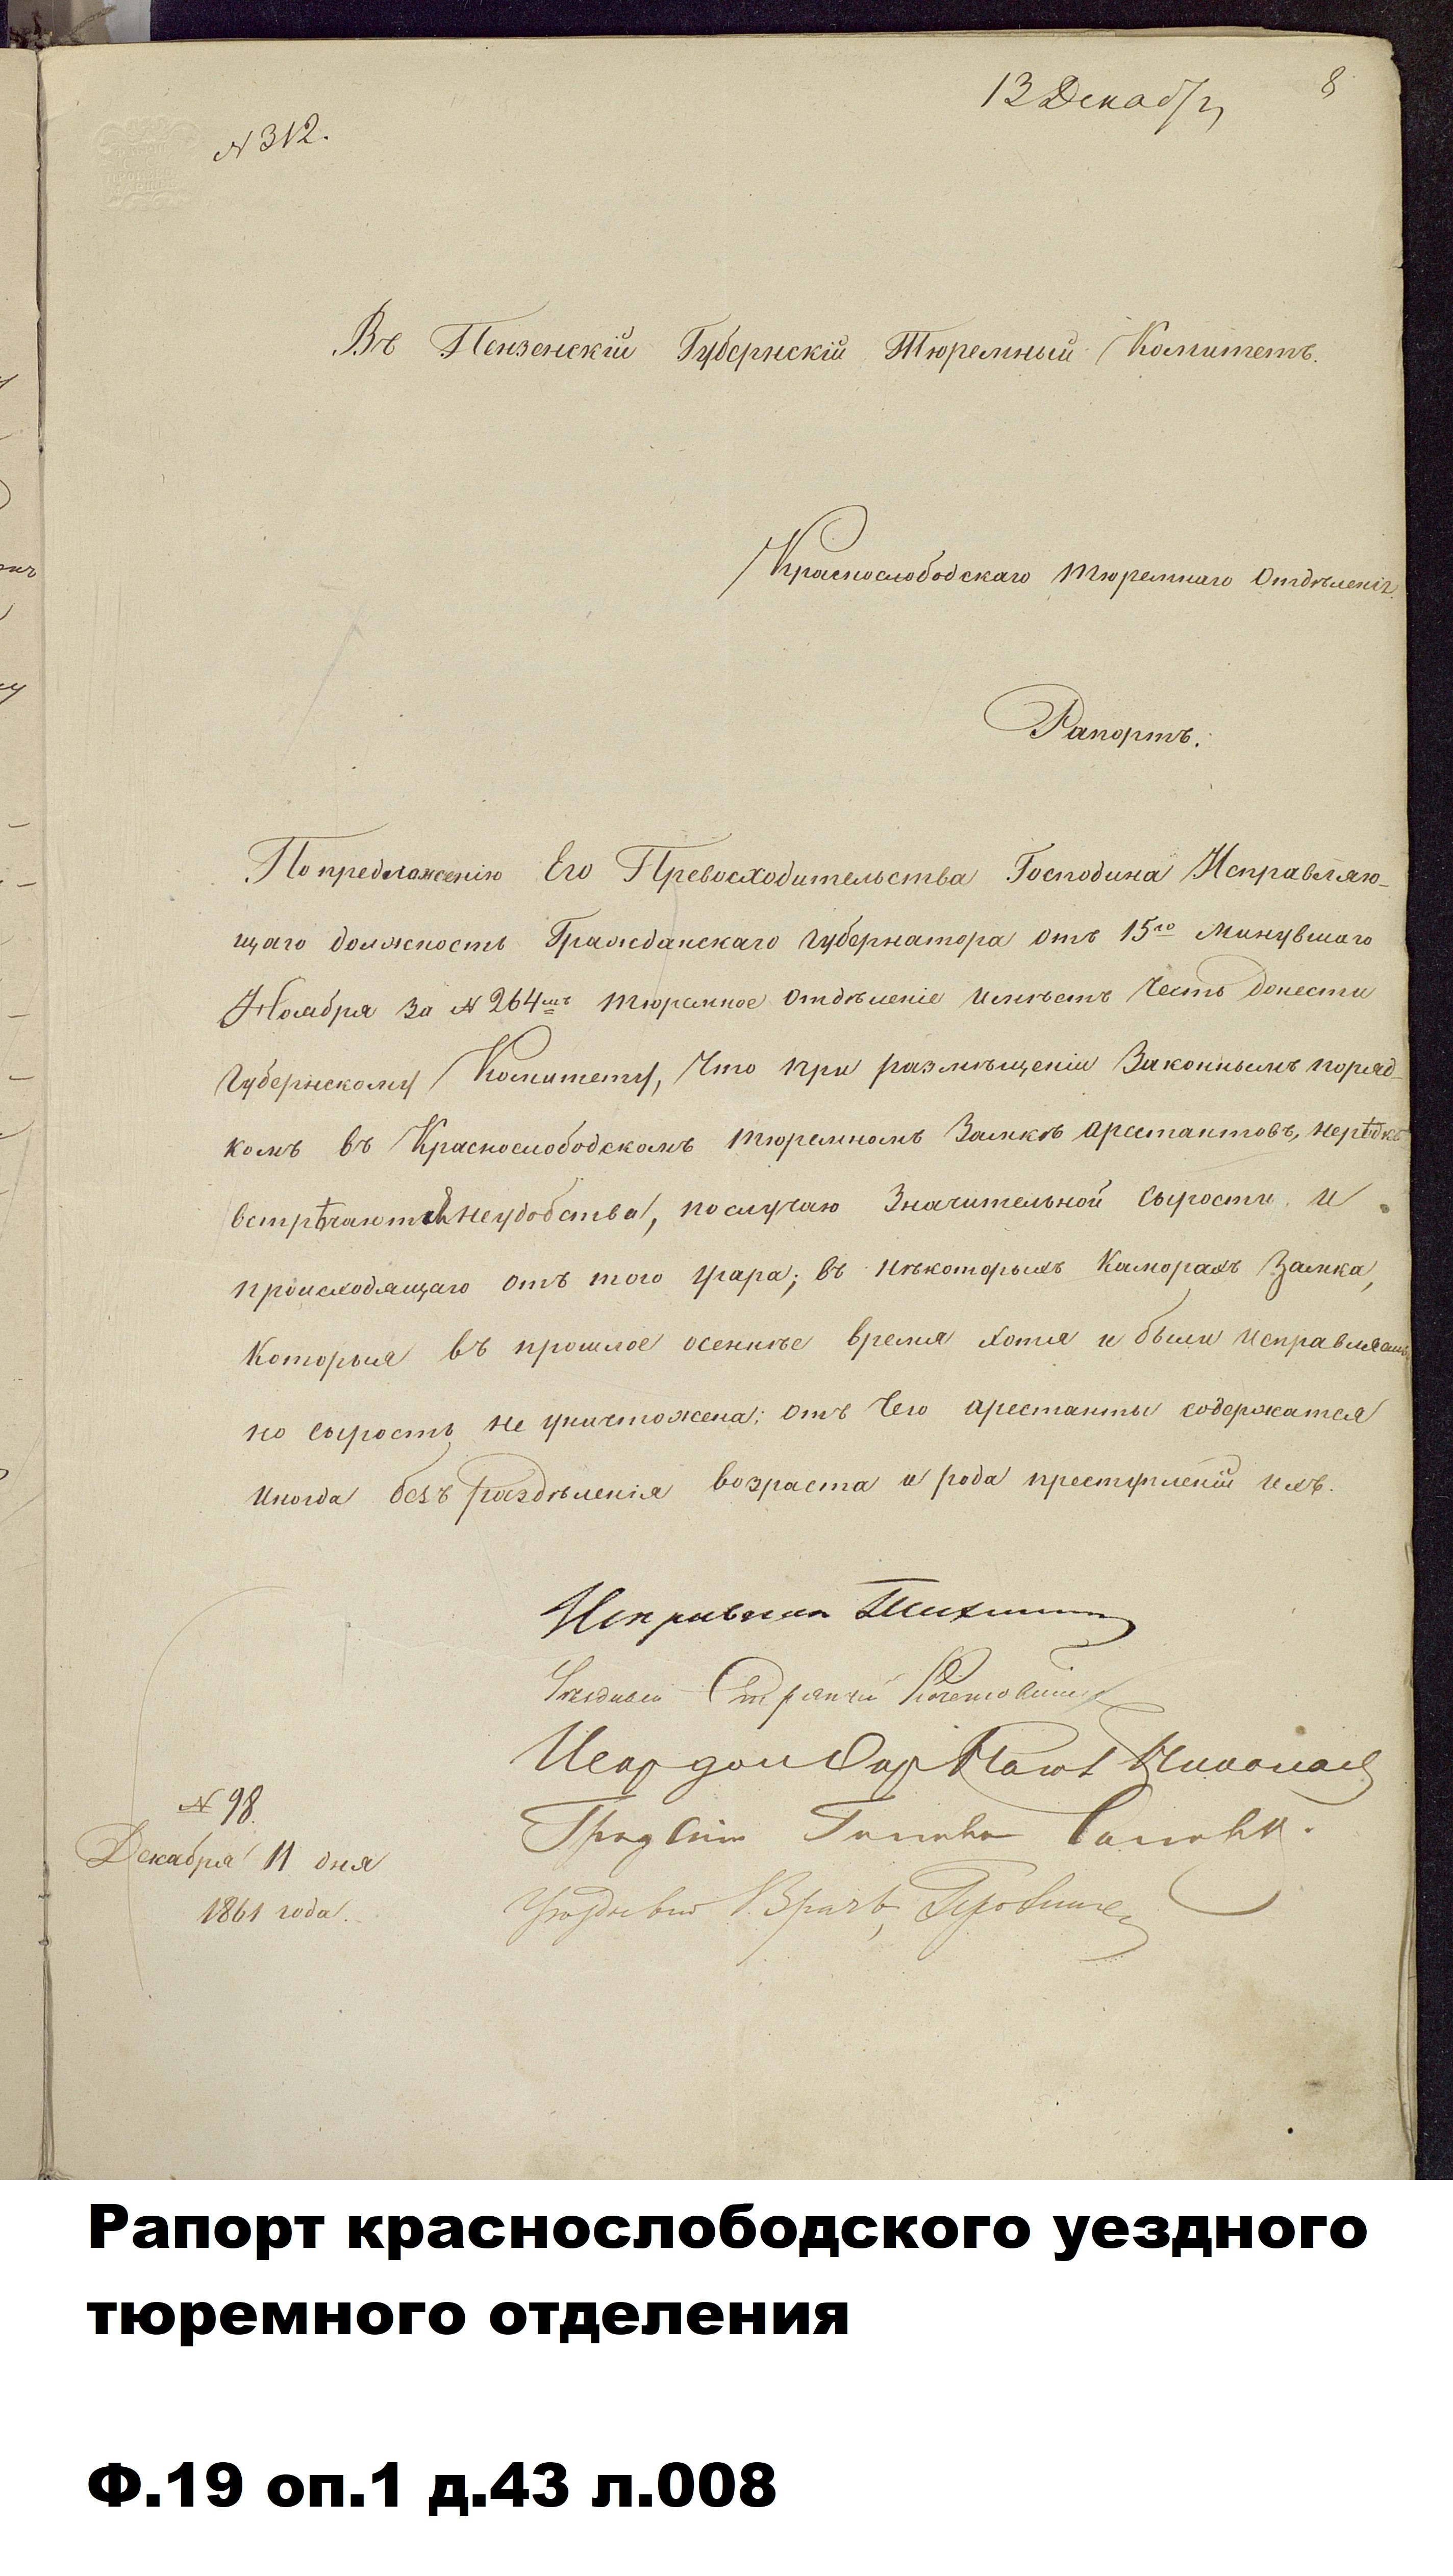 13 Декабря
8
№ 312.
Въ Пензенскій Губернскій Тюремный Комитетъ.
Краснослободскаго тюремнаго Отдѣленія.
Рапортъ.
По предложенію Его Превосходительства Господина Исправляю-
щаго должность Гражданскаго Губернатора отъ 15го минувшаго
Ноября за № 264мъ тюремное отдѣленіе имѣетъ честь донести
Губернскому Комитету, что при размѣщеніи Законнымъ поряд-
комъ въ Краснослободскомъ тюремномъ Замкѣ арестантовъ, нерѣдко
встрѣчаются неудобства, по случаю Значительной сырости и
происходящаго отъ того угара; въ нѣкоторыхъ Каморахъ Замка,
которыя въ прошлое осеннѣе время хотя и были исправляемы,
но сырость не уничтожена; отъ чего арестанты содержатся
иногда безъ раздѣленія возраста и рода преступленій ихъ.
Исправникъ
Уѣздный Стряпчій
Градскій Голова
Уѣздный Врачъ,
№ 98.
Декабря 11 дня
1861 года.
Рапорт краснослободского уездного
тюремного отделения
Ф.19 оп.1 д.43 л.008